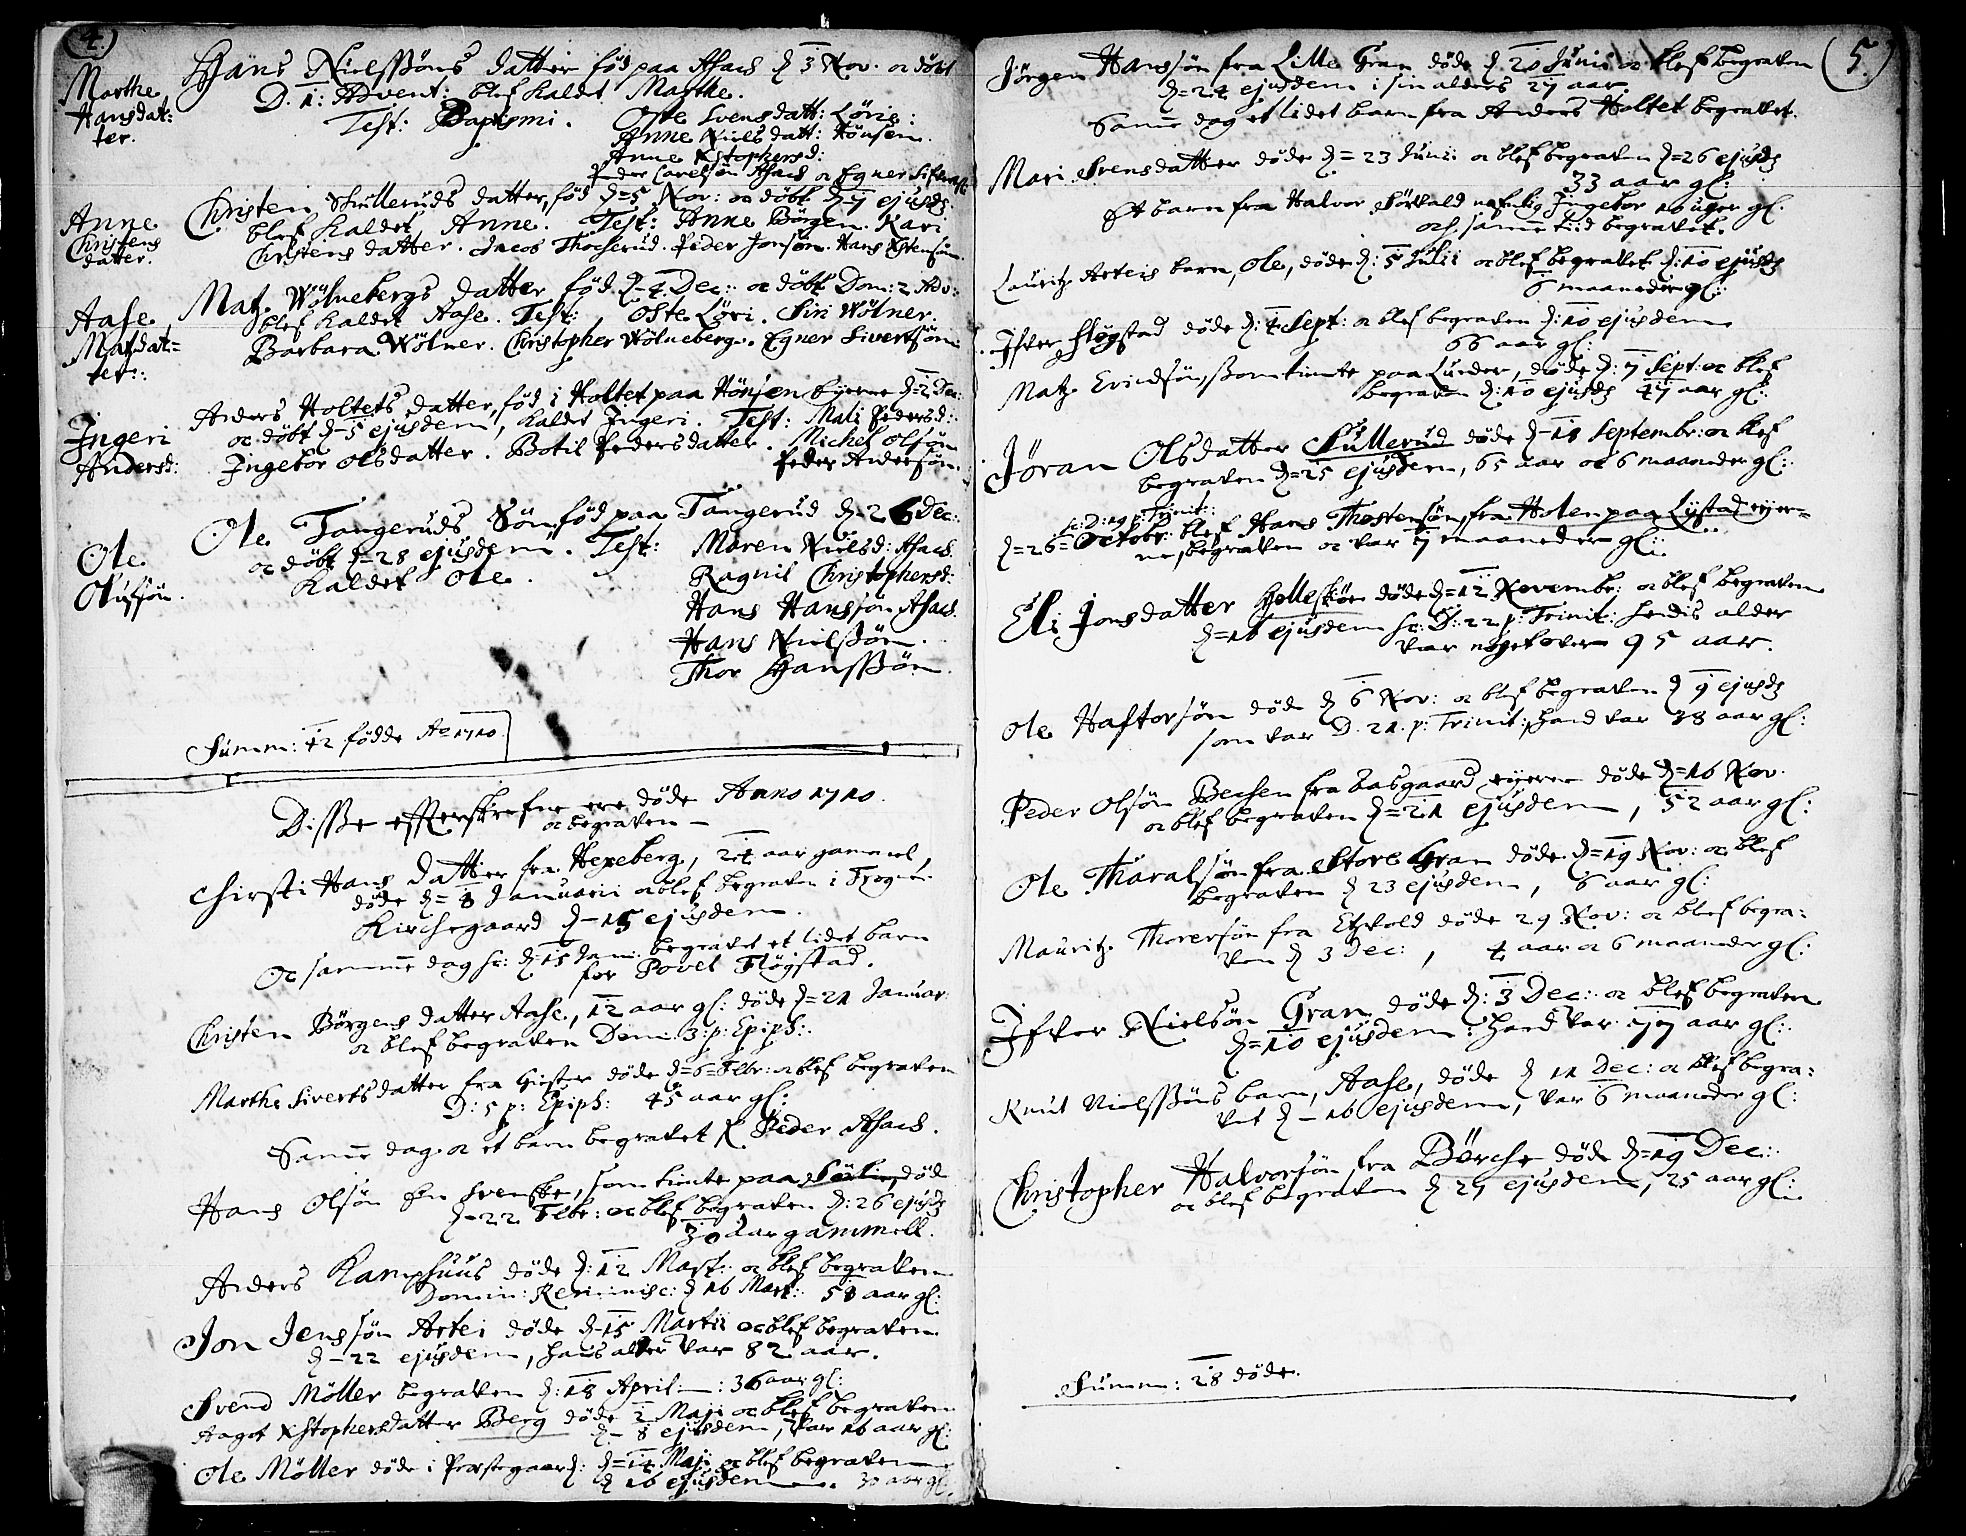 4.
Marthe
Hansdat:
ter.
Hans Nielssøns datter fød paa Asach d 3 Nov. oc døbt
D. 1: Advent: blef kaldet Marthe.
Test: Baptismi. Oste Svensdatt: Lørie:
Anne Nielsdatt: Hønsen.
Anne Xstophersd:
Peder Carelsøn Asach oc Egner
Anne
Christens
datter.
Christen Skulleruds datter, fød d=5 Nov: oc døbt d-7 ejusd:
blef kaldet Anne. Test: Anne Børgen. Kari
Christens datter. Jacob Thoeserud. Peder Jonsøn. Hans Xstensøn.
Aase
Matzdat=
ter:
Matz Wølnebergs datter fød d-4 Dec: oc døbt Dom: 2 Adv:
blef kaldet Aase. Test: Oste Løri. Siri Wølner.
Barbara Wølner. Christopher Wølneberg. Egner Sivertsøn
Ingeri
Andersd:
Anders Holtets datter, fød i Holtet paa Hønsen eyerne d=2 Dec:
oc døbt d-5 ejusdem, kaldet Ingeri. Test: Mari Pedersd:
Ingebor Olsdatter. Botil Pedersdatter. Michel Olsøn
Peder Andersøn.
Ole
Olufsøn.
Ole Tangeruds Søn fød paa Tangerud d-26 Dec:
oc døbt d-28 ejusdem. Test: Maren Nielsd: Asach
kaldet Ole. Ragnil Christophersd:
Hans Hanssøn Asach.
Hans Nielssøn.
Thor Hanssøn
Summ: 12 fødde Ao 1710.
Disse effterskrefne ere døde Anno 1710.
oc begraven
Chirsti Hans datter fra Hexeberg, 24 aar gammel,
døde d=8 Januarii oc blef begraven i Frogn
Kirchegaard d-15 ejusdem.
Oc samme dag sc: d-15 Jan: begravet et lidet barn
for Povel Fløgstad.
Christen Børgens datter Aase, 12 aar gl: døde d=21 Januar
oc blef begraven Dom: 3 p: Epiph:
Marthe Siverts datter fra døde d=6=Febr: oc blef begraven
D: 5 p: Epiph: 45 aar gl:
Samme dag oc et barn begravet f Peder Asach.
Hans Olsøn Svenske, som tiente paa døde
d-22 Febr: oc blef begraven d: 26 ejusd:
30 aar gammell.
Anders Kamphuus døde d: 12 Mart: oc blef begraven
Domin: Reminisc: d 16 Mart: 58 aar gl:
Jon Jenssøn Artei døde d-15 Martii oc blef begraven
d-22 ejusdem, hans alder var 82 aar.
Svend Møller begraven d: 18 April: 36 aar gl:
Aagot Xstophersdatter Berg døde 2 Maji oc blef begraven
d-8 ejusdem, var 16 aar gl:
Ole Møller døde i Præstegaard: d=14 Maji oc blef begraven
d 16 ejusdem. 30 aar gl.
(5.)
Jørgen Hanssøn fra Lille Gran døde d. 20 Junii oc blef begraven
d=24 ejusdem i sin alders 27 aar.
Samme dag et lidet barn fra Anders Holtet begravet.
Mari Svensdatter døde d=23 Juni: oc blef begraven d=26 ejusd:
33 aar gl:
Et barn fra Halvor nefnlig Ingebor 10 uger gl:
ochs. samme tiid begravet.
Lauritz Arteis barn, Ole, døde d: 5 Julii oc blef begravet d: 10 ejusd:
6 maaneder gl:
Ifver Fløgstad døde d: 4 Sept: oc blef begraven d: 10 ejusdem
66 aar gl:
Matz Erichsøn, som tiente paa Lurder, døde d: 7 Sept: oc blef
begraven d: 10 ejusd: 47 aar gl:
Jøran Olsdatter Skullerud døde d-18 Septembr: oc blef
begraven d=25 ejusdem, 65 aar oc 6 maaneder gl:
sc: D: 19 p: Trinit:
d=26=Octobr: blef Hans Thostensøn, fra Holen paa Lystad eyer=
ne, begraven oc var 7 maaneder gl:
Eli Jonsdatter døde d=12 Novembr: oc blef begraven
d=16 ejusdem sc: D: 22 p: Trinit: hendis alder
var noget over 95 aar.
Ole Haftorsøn døde d 6 Nov: oc blef begraven d 9 ejusd:
som var D. 21. p: Trinit: hand var 38 aar gl:
Peder Olsøn fra Aasgaard eyerne døde d=16 Nov.
oc blef begraven d=21 ejusdem, 52 aar gl:
Ole Tharalsøn fra Store Gran døde d=19 Nov: oc blef
begraven d 23 ejusdem, 6 aar gl:
Mauritz Thorersøn fra døde 29 Nov: oc blef begra:
ven d 3 Dec:, 4 aar oc 6 maaneder gl:
Ifver Nielsøn Gran døde d: 3 Dec: oc blef begraven
d=10 ejusdem: hand var 77 aar gl:
Knut Nielssøns barn, Aase, døde d 11 Dec: oc blef begra:
vet d-16 ejusdem, var 6 maaneder gl:
Christopher Halvorsøn fra Børche døde d=19 Dec:
oc blef begraven d 27 ejusdem, 25 aar gl:
Summ: 28 døde.